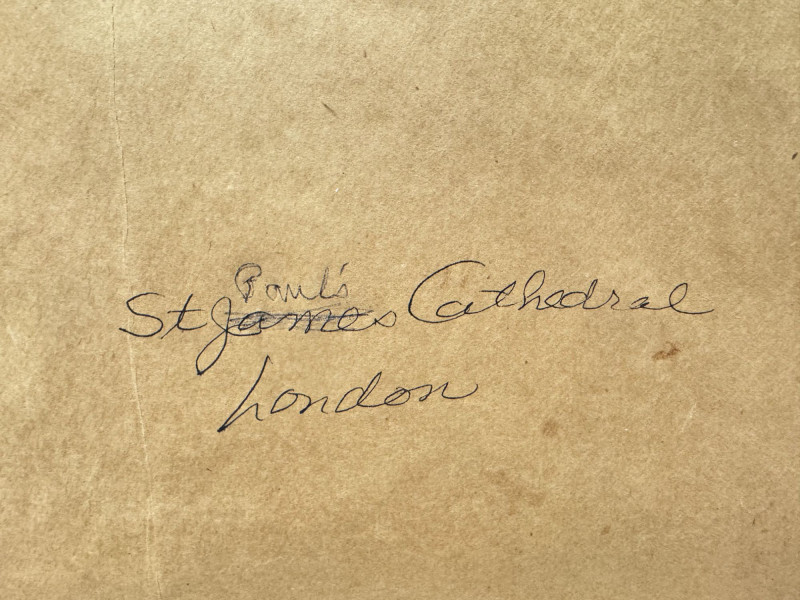 Paul's
St James Cathedral
London